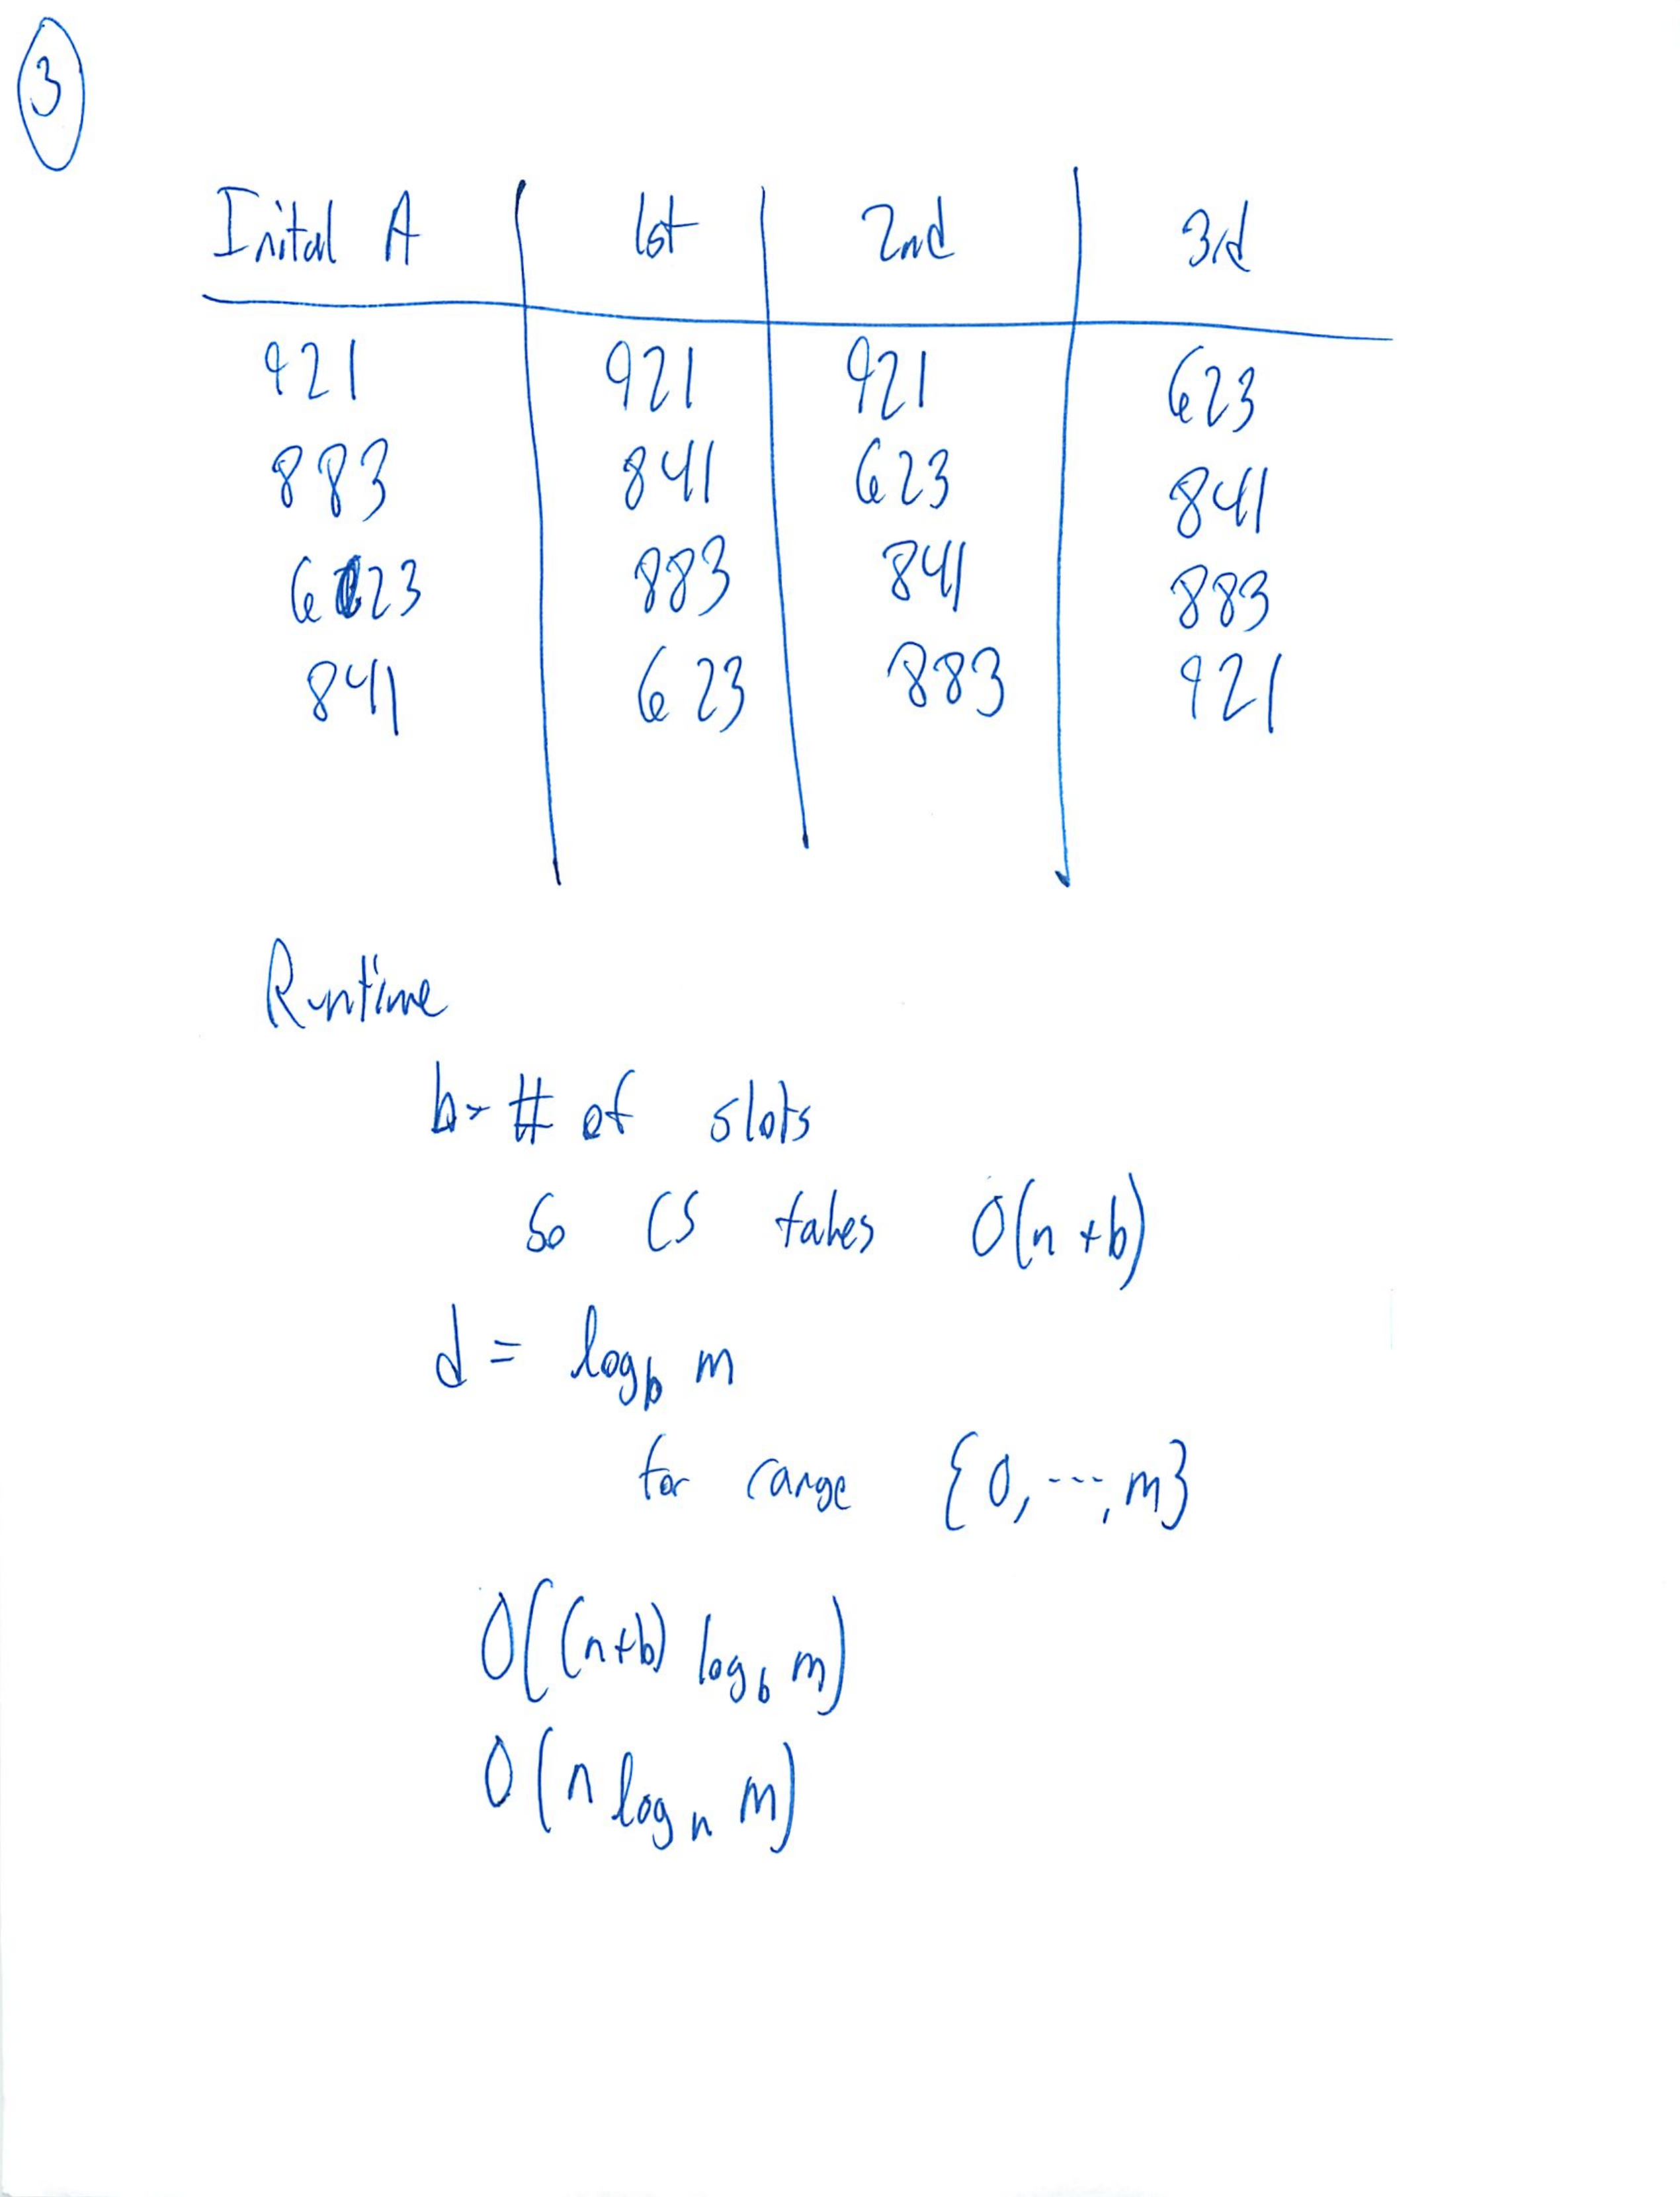 3
Inital A 1st 2nd 3rd
921 921 921 623
883 841 623 841
623 883 841 883
841 623 883 921
Runtime
b = # of slots
So CS takes O(n+b)
d = log_b m
for range {0,...,m}
O((n+b) log_b m)
O(n log_n m)